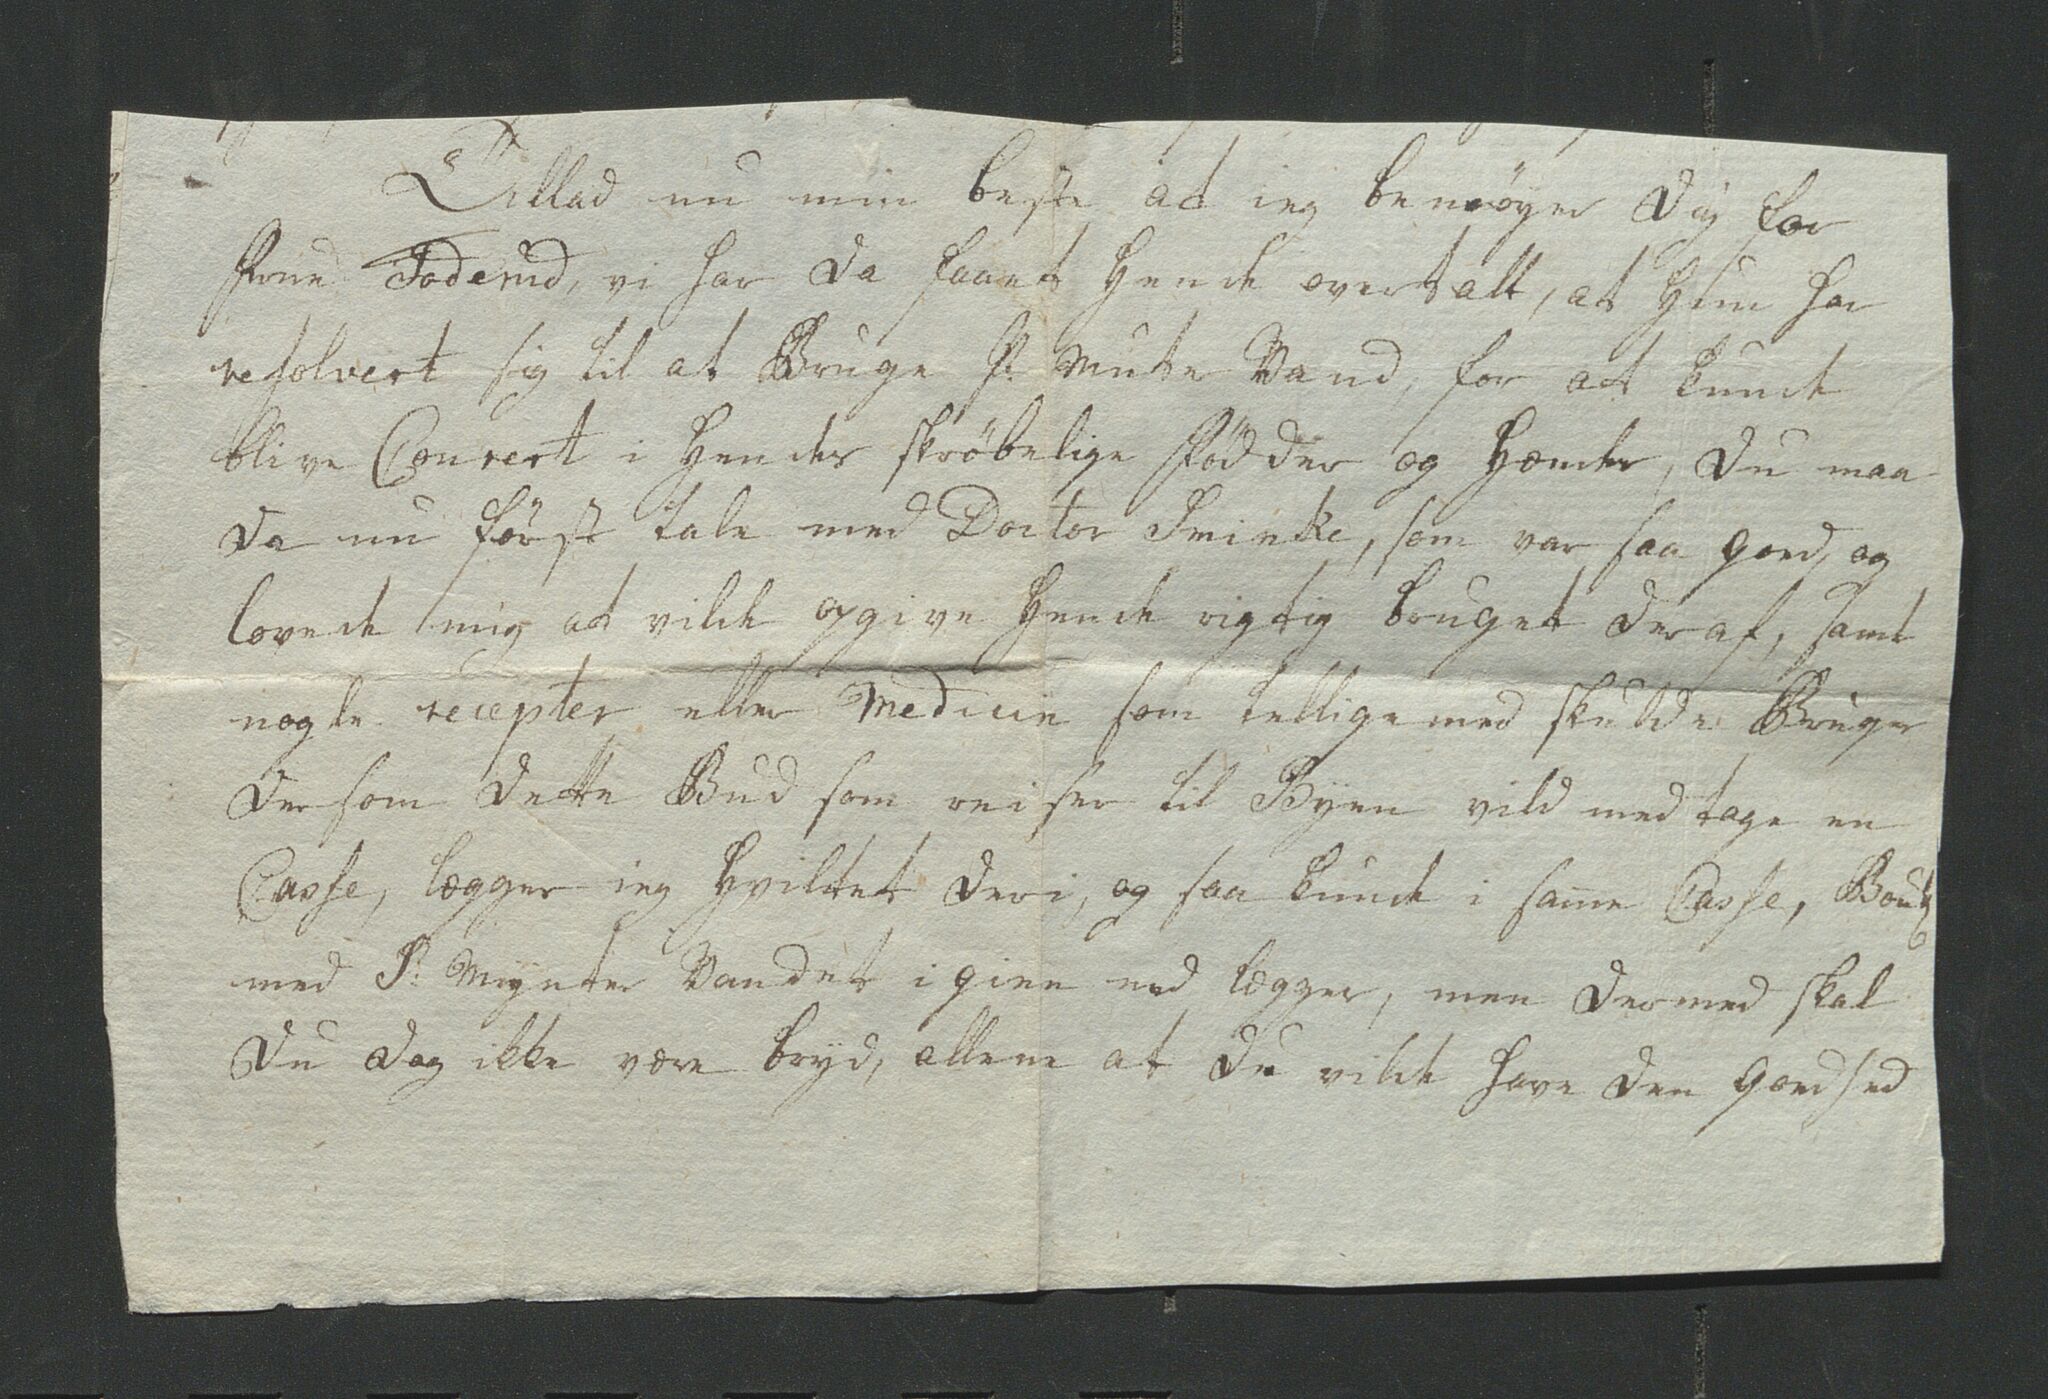 Tillad nu min beste at ieg bemöyer Dig for
Frue Foderud, vi har da faaet Hende overtalt, at Hun har
resolvert sig til at Bruge P: Munter Vand, for at kunde
blive Coureert i Hendes skröbelige Födder og Hænder, Du maa
da nu först tale med Doctor Smincke, som var saa goed, og
lovede mig at vilde opgive Hende rigtig bruget deraf, samt
nogle recepter eller Medicin som tillige med skulde Bruges
dersom dette Bud som reiser til Byen vild medtage en
Casse, lægger ieg Hviltet deri, og saa kunde i samme Casse, Bout
med P: Mynter Vandet igien ned lægges, men dermed skal
Du dog ikke være bryd, allene at Du vilde have den Goedhed